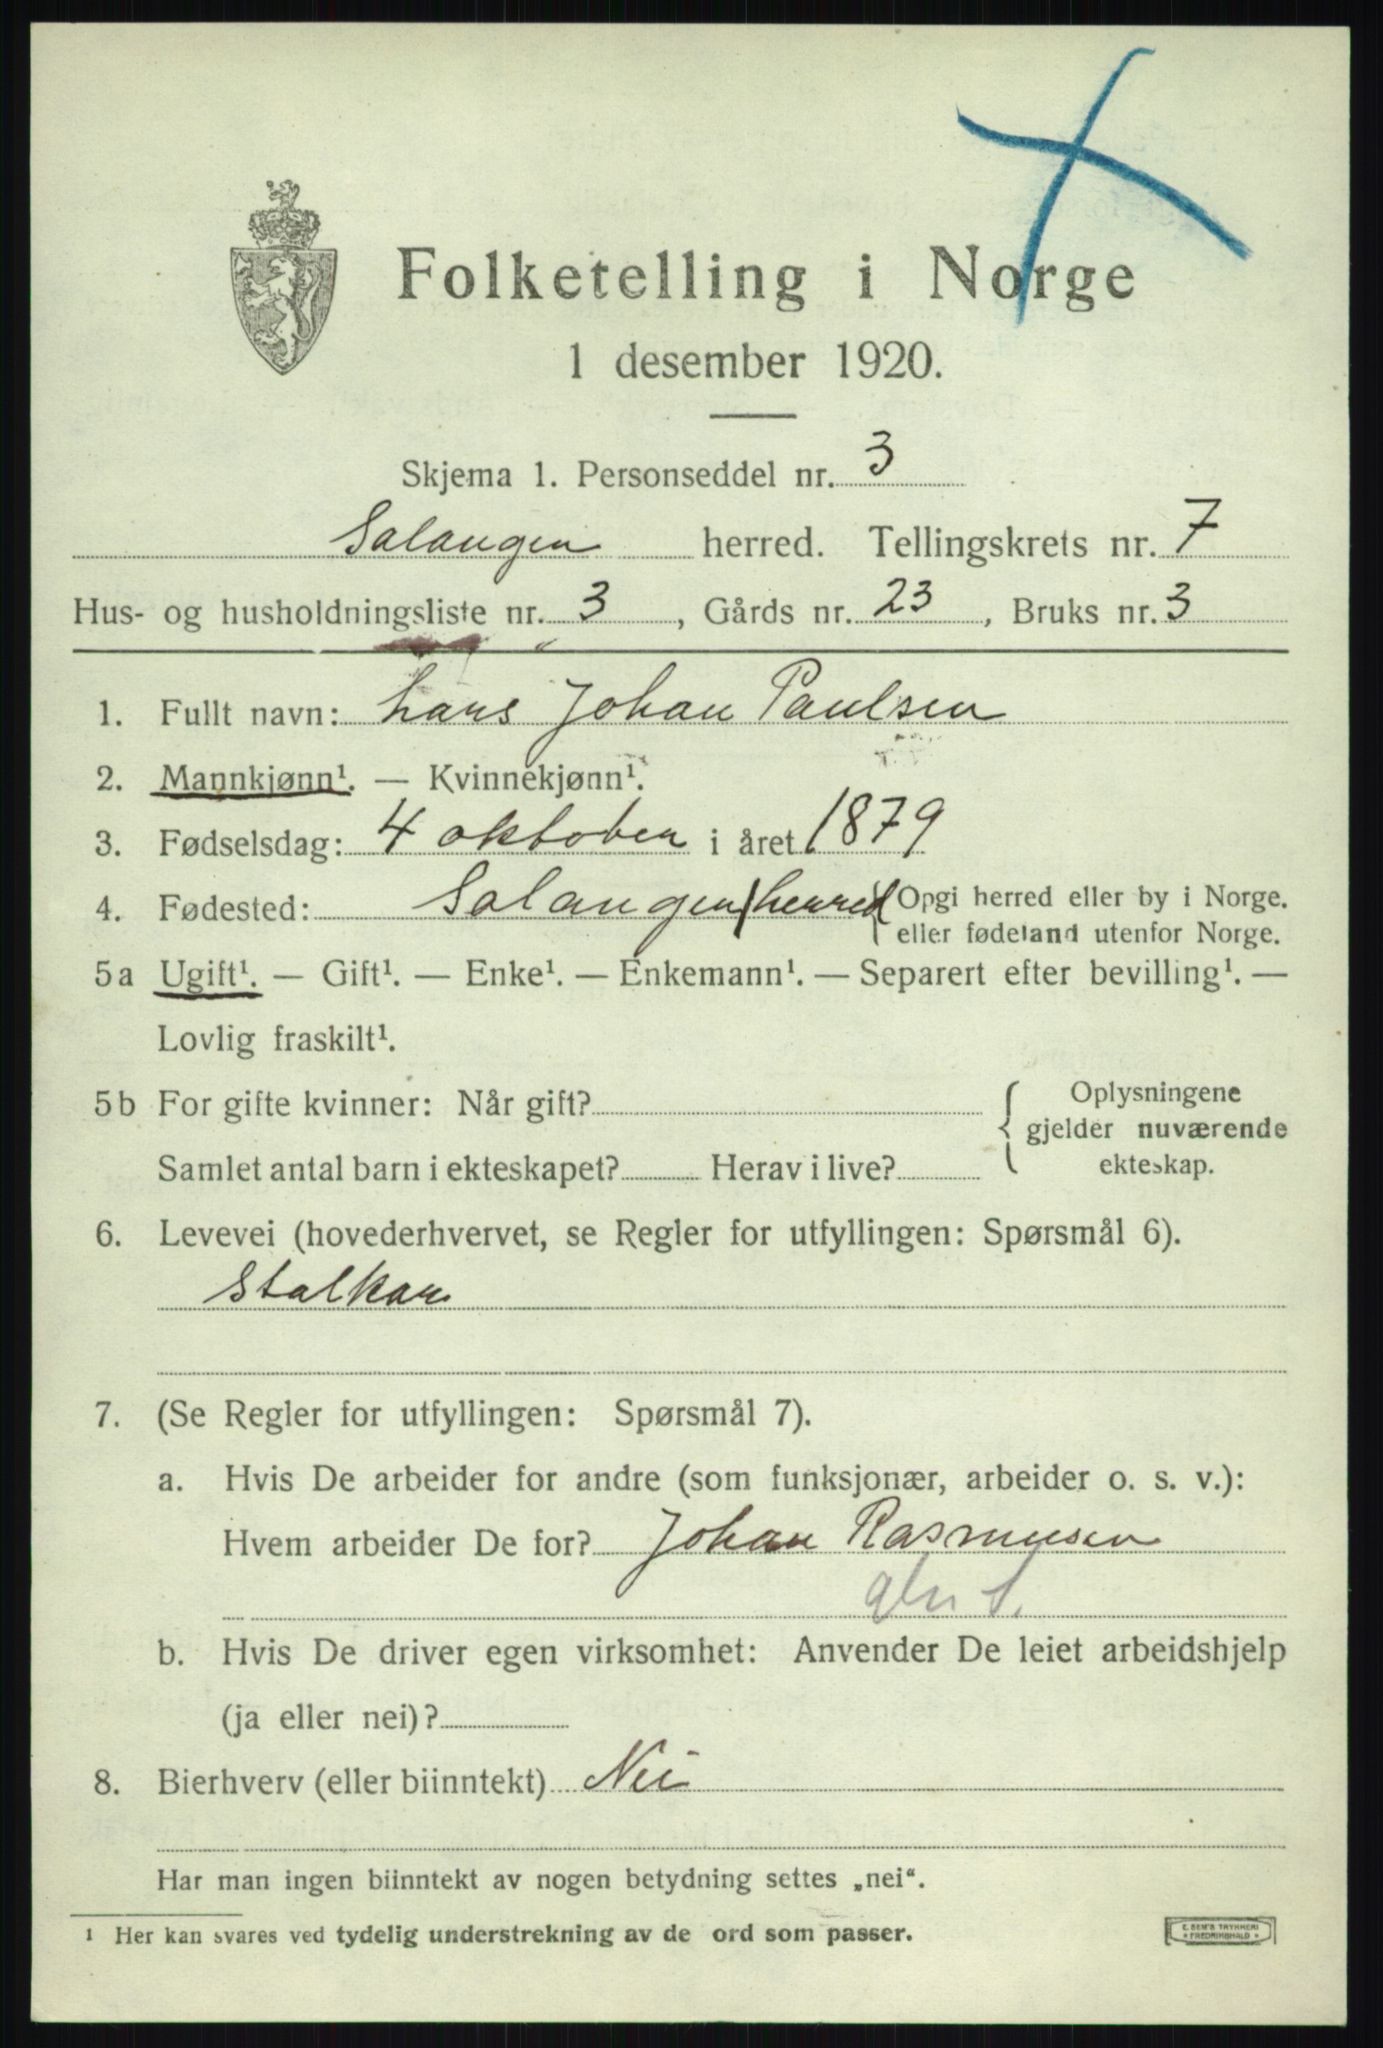 Folketelling i Norge
1 desember 1920.
Skjema 1. Personseddel nr. 3
Salangen herred. Tellingskrets nr. 7
Hus- og husholdningsliste nr. 3, Gårds nr. 23, Bruks nr. 3
1. Fullt navn: Lars Johan Paulsen
2. Mannkjønn¹. — Kvinnekjønn¹.
3. Fødselsdag: 4 oktober i året 1879
4. Fødested: Salangen herred { Opgi herred eller by i Norge.
eller fødeland utenfor Norge.
5a Ugift¹. — Gift¹. — Enke¹. — Enkemann¹. — Separert efter bevilling¹. —
Lovlig fraskilt¹.
5b For gifte kvinner: Når gift? { Oplysningene
gjelder nuværende
Samlet antal barn i ekteskapet? Herav i live? ekteskap.
6. Levevei (hovederhvervet, se Regler for utfyllingen: Spørsmål 6).
Stalkar
7. (Se Regler for utfyllingen: Spørsmål 7).
a. Hvis De arbeider for andre (som funksjonær, arbeider o. s. v.):
Hvem arbeider De for? Johan Rasmusen
b. Hvis De driver egen virksomhet: Anvender De leiet arbeidshjelp
(ja eller nei)?
8. Bierhverv (eller biinntekt) Nei
Har man ingen biinntekt av nogen betydning settes „nei“.
¹ Her kan svares ved tydelig understrekning av de ord som passer.
E. SEM'S TRYKKERI
* FREDRIKSHALD *